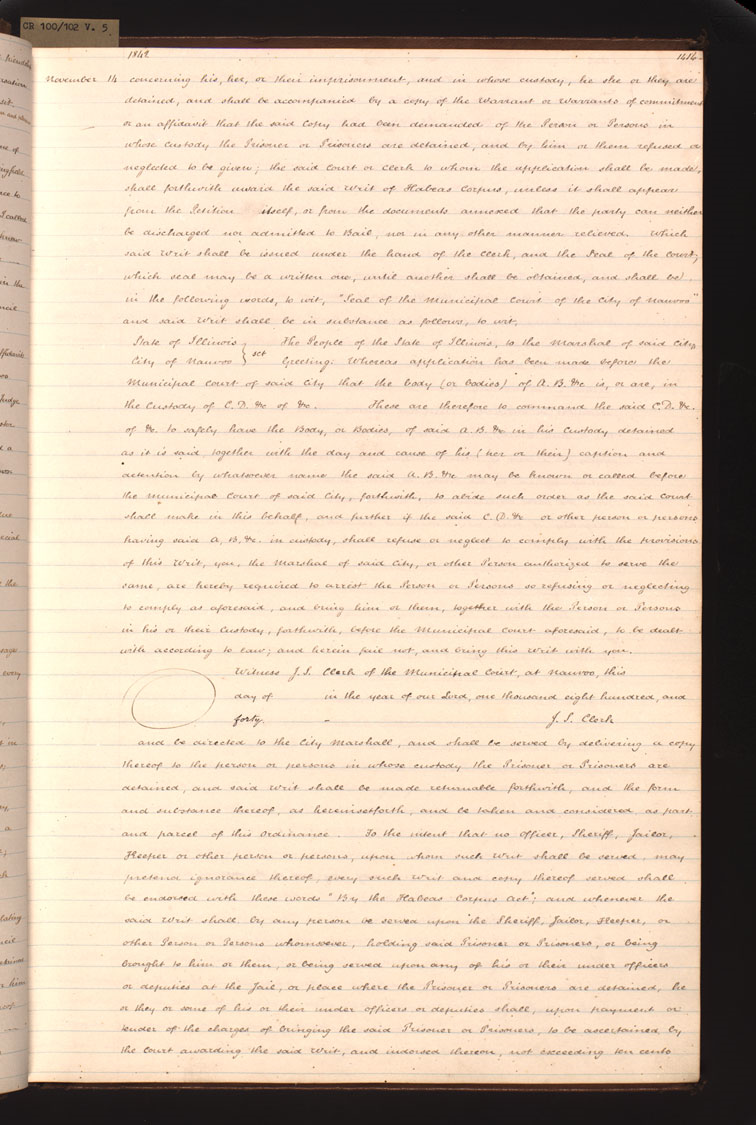 CR 100/102 V. 5
1842 1414
November 14 concerning his, her, or their imprisonment, and in whose custody, he she or they are
detained, and shall be accompanied by a copy of the Warrant or Warrants of commitment
or an affidavit that the said Copy had been demanded of the Person or Persons in
whose custody the Prisoner or Prisoners are detained, and by him or them refused or
neglected to be given; the said Court or Clerk to whom the application shall be made,
shall forthwith award the said Writ of Habeas Corpus, unless it shall appear
from the Petition itself, or from the documents annexed that the party can neither
be discharged nor admitted to Bail, nor in any other manner relieved. Which
said Writ shall be issued under the hand of the Clerk, and the Seal of the Court;
which seal may be a written one, until another shall be obtained, and shall be
in the following words, to wit, "Seal of the Municipal Court of the City of Nauvoo"
and said Writ shall be in substance as follows, to wit,
State of Illinois } sct The People of the State of Illinois, to the Marshal of said City,
City of Nauvoo Greeting: Whereas application has been made before the
Municipal Court of said City that the body (or bodies) of A. B. &c is, or are, in
the Custody of C. D. &c of &c. These are therefore to command the said C. D. &c.
of &c. to safely have the Body, or Bodies, of said A. B. &c in his Custody detained
as it is said, together with the day and cause of his (her or their) caption and
detention by whatsoever name the said A. B. &c may be known or called before
the Municipal Court of said City, forthwith, to abide such order as the said Court
shall make in this behalf, and further if the said C. D. &c or other person or persons
having said A. B. &c. in custody, shall refuse or neglect to comply with the provisions
of this Writ, you, the Marshal of said City, or other Person authorized to serve the
same, are hereby required to arrest the Person or Persons so refusing or neglecting
to comply as aforesaid, and bring him or them, together with the Person or Persons
in his or their Custody, forthwith, before the Municipal Court aforesaid, to be dealt
with according to law; and herein fail not, and bring this Writ with you.
Witness J. S. Clerk of the Municipal Court, at Nauvoo, this
day of in the year of our Lord, one thousand eight hundred, and
forty. – J. S. Clerk
and be directed to the City Marshall, and shall be served by delivering a copy
thereof to the person or persons in whose custody the Prisoner or Prisoners are
detained, and said Writ shall be made returnable forthwith, and the form
and substance thereof, as herein setforth, and be taken and considered as part
and parcel of this Ordinance. To the intent that no officer, Sheriff, Jailor,
Keeper or other person or persons, upon whom such Writ shall be served, may
pretend ignorance thereof, every such Writ and copy thereof served shall
be endorsed with these words "By the Habeas Corpus Act"; and whenever the
said Writ shall by any person be served upon the Sheriff, Jailor, Keeper, or
other Person or Persons whomsoever, holding said Prisoner or Prisoners, or being
brought to him or them, or being served upon any of his or their under officers
or deputies at the Jail, or place where the Prisoner or Prisoners are detained, he
or they or some of his or their under officers or deputies shall, upon payment or
tender of the charges of bringing the said Prisoner or Prisoners, to be ascertained by
the Court awarding the said Writ, and indorsed thereon, not exceeding ten cents